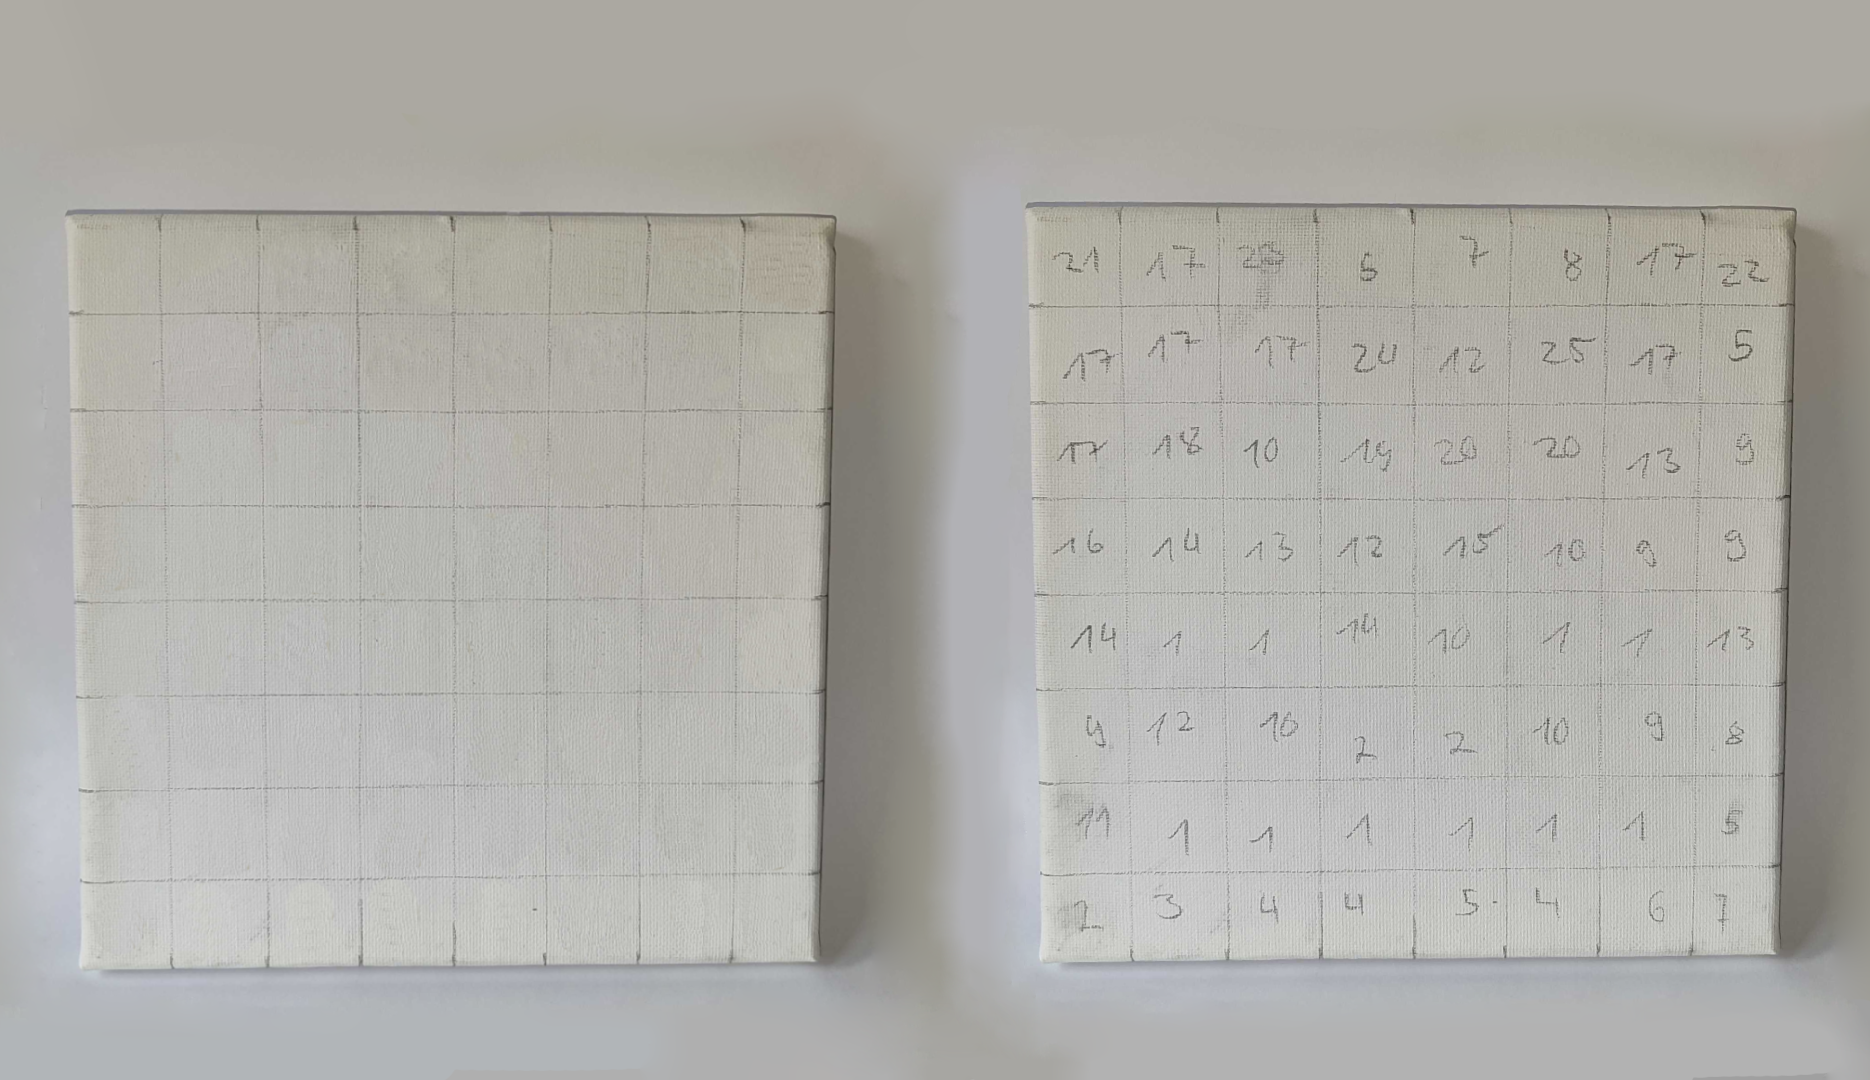 21 17 23 6 7 8 17 22
17 17 17 24 12 25 17 5
17 18 10 19 20 20 13 9
16 14 13 12 15 10 9 9
14 1 1 14 10 1 1 13
9 12 10 2 2 10 9 8
11 1 1 1 1 1 1 5
2 3 4 4 5 4 6 7